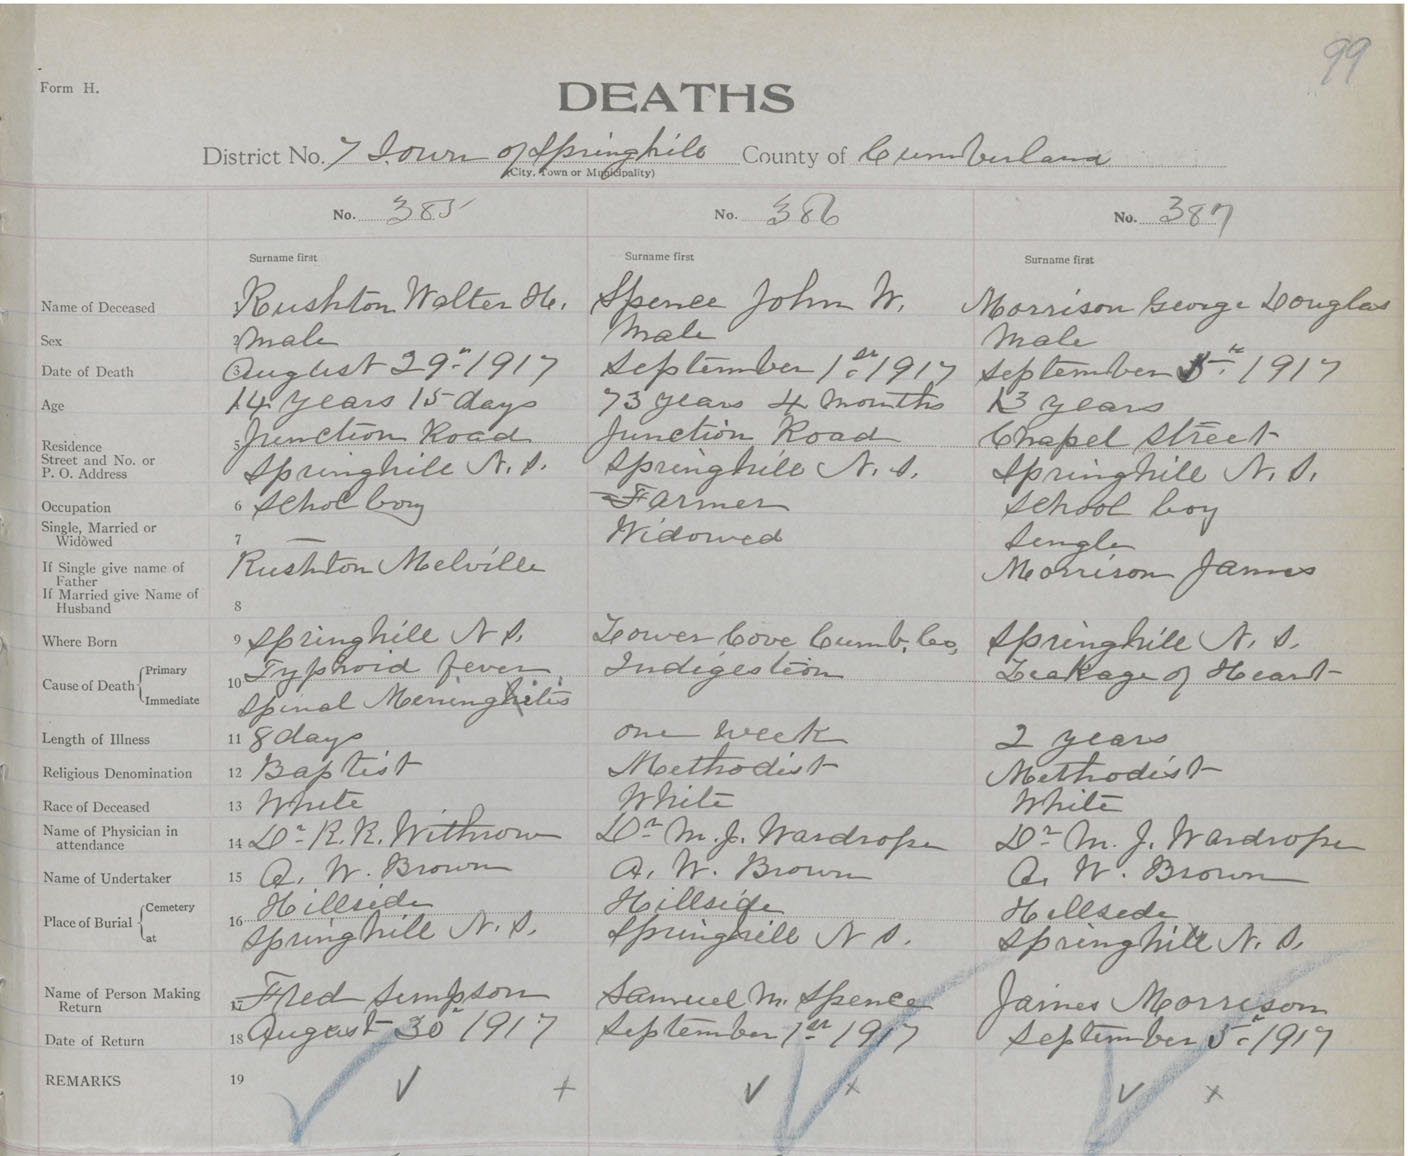 99
Form H.
DEATHS
District No. 7 Town of Springhill County of Cumberland
(City, Town or Municipality)
No. 385 No. 386 No. 387
Surname first Surname first Surname first
Name of Deceased 1 Rushton Walter H. Spence John W. Morrison George Douglas
Sex 2 Male Male Male
Date of Death 3 August 29" 1917 September 1st 1917 September 5th 1917
Age 14 years 15 days 73 years 4 months 13 years
Residence 5 Junction Road Junction Road Chapel Street
Street and No. or
P. O. Address Springhill N.S. Springhill N.S. Springhill N.S.
Occupation 6 Schol boy Farmer School boy
Single, Married or
Widowed 7 — Widowed Single
If Single give name of
Father Rushton Melville Morrison James
If Married give Name of
Husband 8
Where Born 9 Springhill N S. Lower Cove Cumb. Co. Springhill N. S.
Cause of Death { Primary 10 Typhoid fever Indigestion Leakage of Heart
Immediate Spinal Meninghitis
Length of Illness 11 8 days one week 2 years
Religious Denomination 12 Baptist Methodist Methodist
Race of Deceased 13 White White White
Name of Physician in
attendance 14 Dr R.R. Withrow Dr M. J. Wardrope Dr M. J. Wardrope
Name of Undertaker 15 A. W. Brown A. W. Brown A. W. Brown
Place of Burial { Cemetery 16 Hillside Hillside Hillside
at Springhill N. S. Springhill N S. Springhill N. S.
Name of Person Making
Return 17 Fred Simpson Samuel M. Spence James Morrison
Date of Return 18 August 30" 1917 September 1st 1917 September 5th 1917
REMARKS 19 ✓ + ✓ x ✓ x